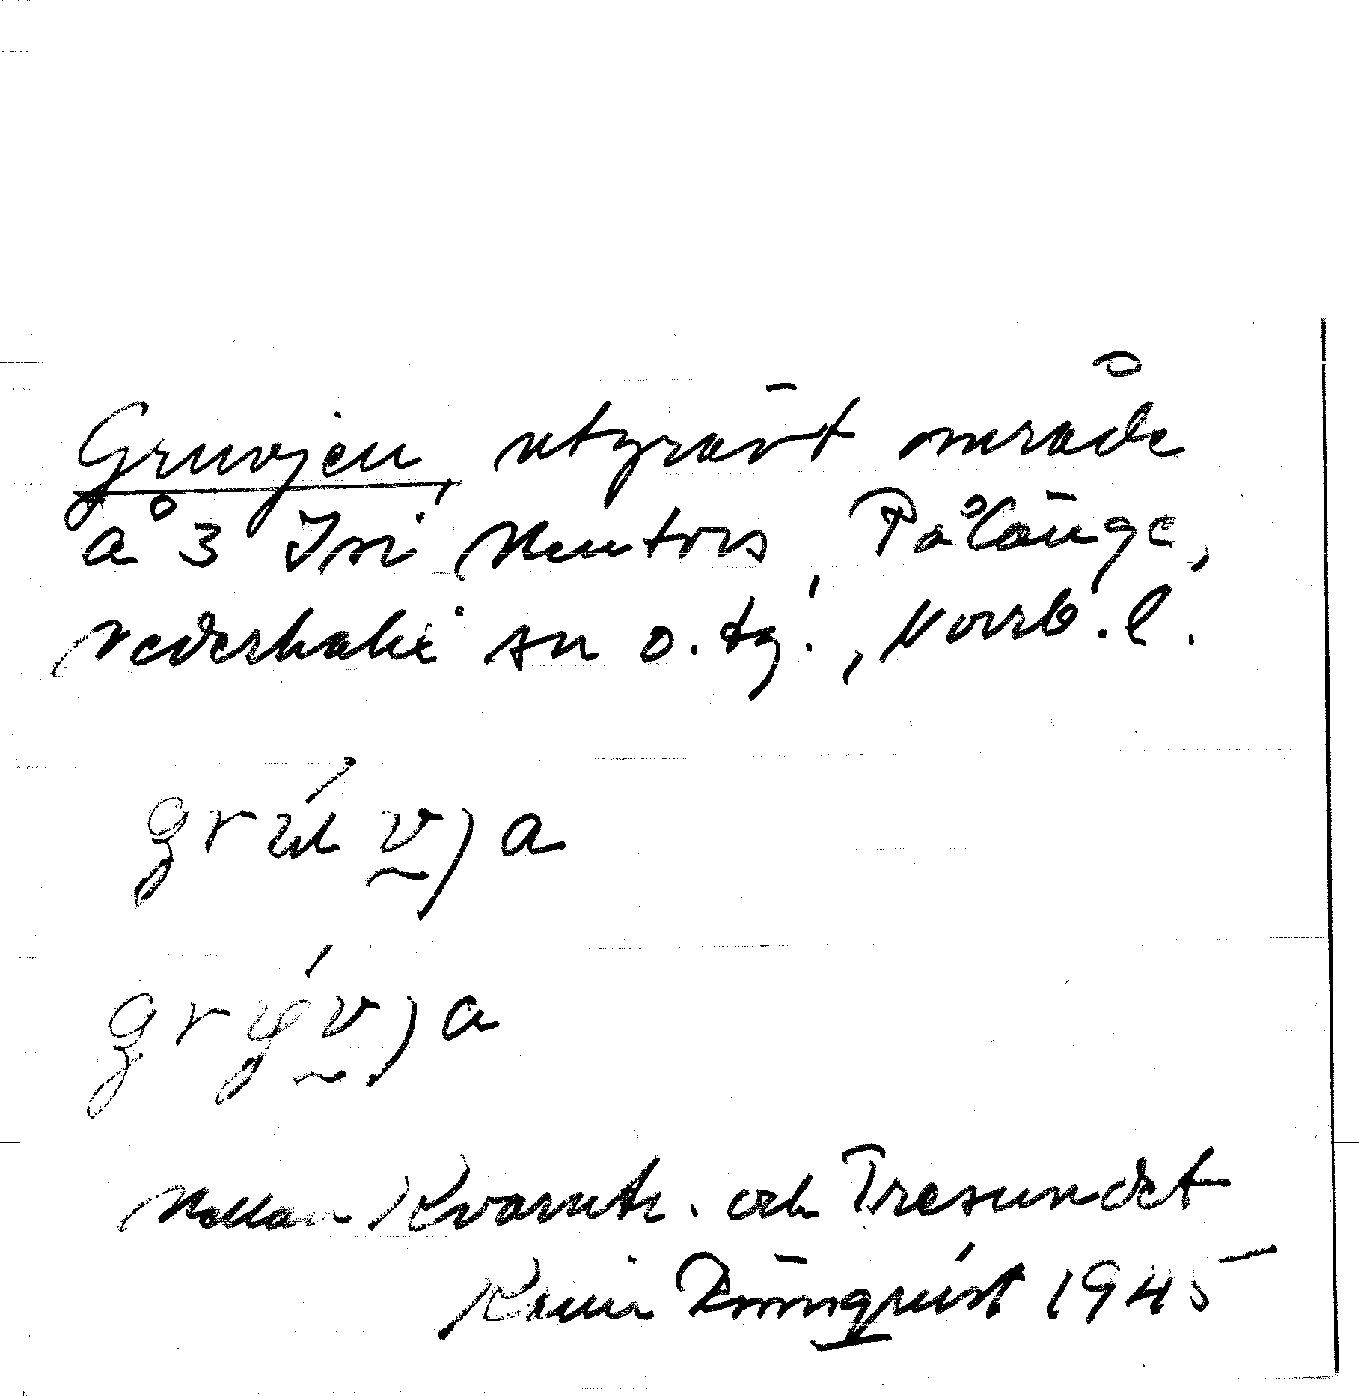 Gruvjen, utgrävt område
å 3 Mentors, Pålänge,
Nederkalix sn o. tg., Norrb. l.
grúvja
Mellan Kvarntr. och Tresundet
Karin Rönnqvist 1945